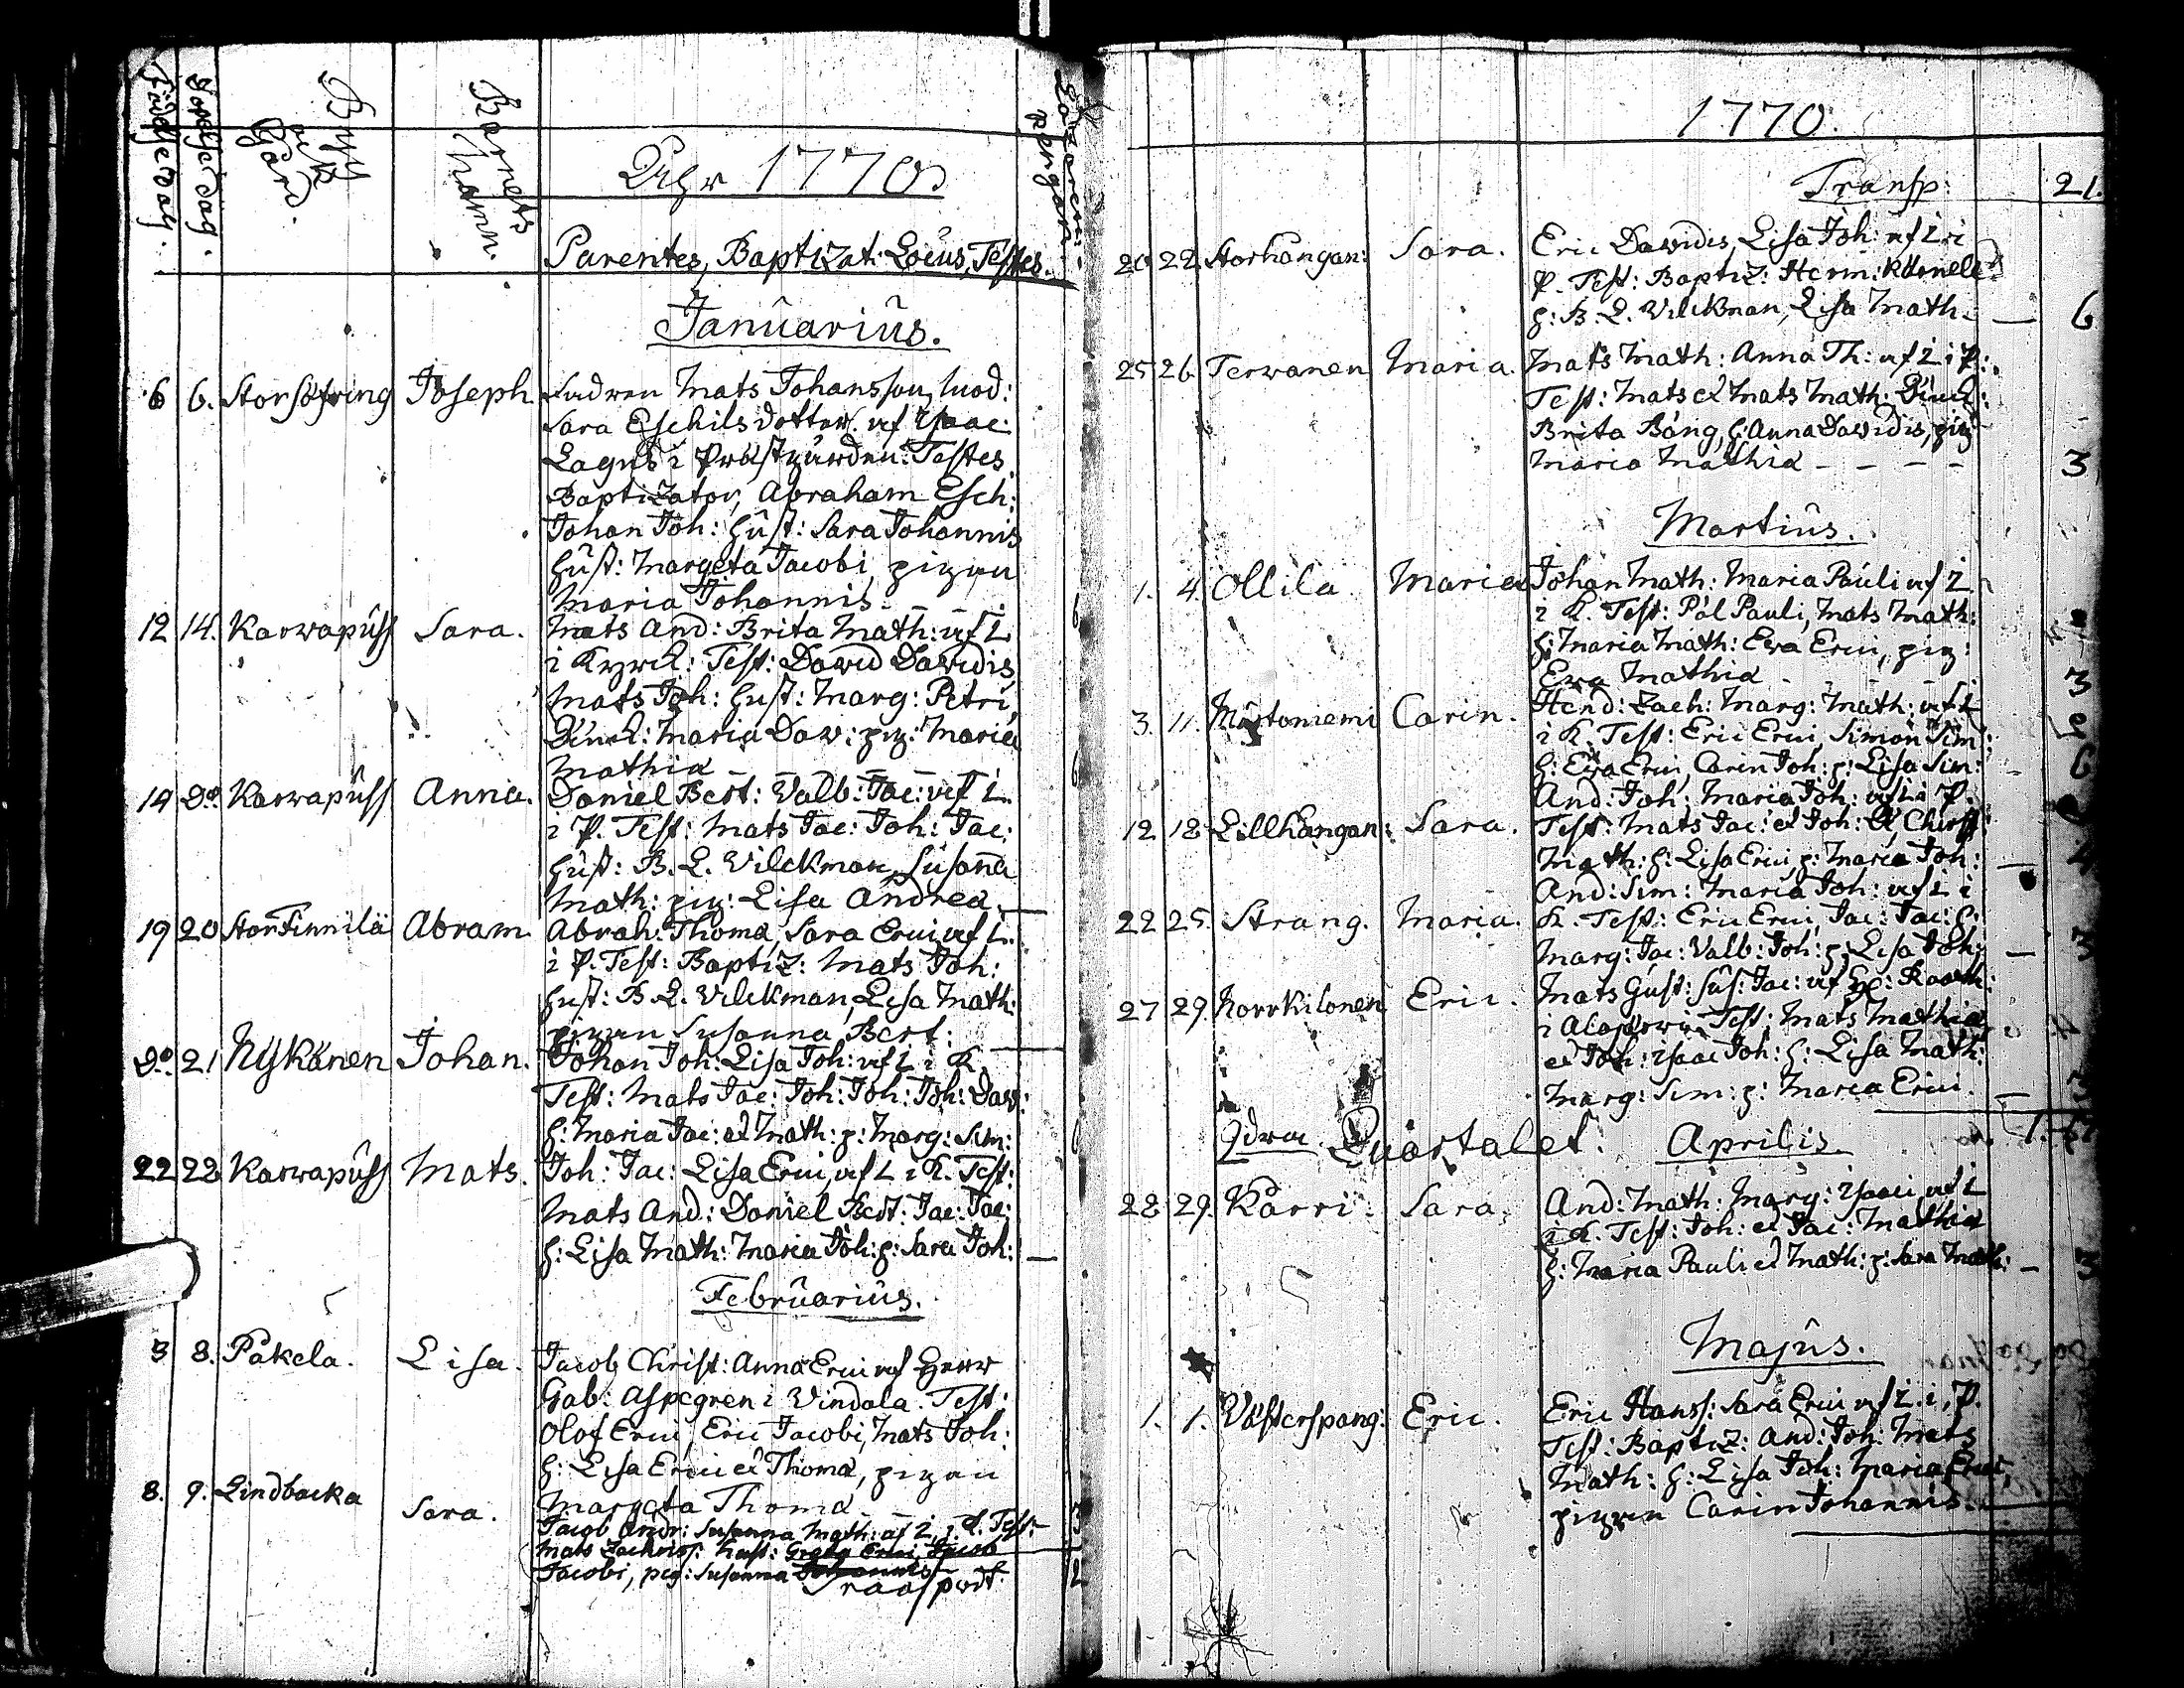 Födjelsedag.
Dag.
By och Gård.
Barnets Namn.
Åhr 1770
Parentes, Baptizat: Locus, Testes.
Januarius.
6 6. Storsöfring Joseph Fadren Mats Johansson, Mod:
Sara Eschilsdotter. af Isaac
Lagus i Prästgården. Testes
Baptizator, Abraham Esch:
Johan Joh: Hust: Sara Johannis
Hust: Margeta Jacobi, pigan
Maria Johannis
12 14. Karwapuss Sara. Mats And: Brita Math: af L
i Kyrck: Test: David Davidis
Mats Joh: Hust: Marg: Petri,
Enck: Maria Daw: pig: Maria
Mathiæ
14 Do. Karwapuss Anna. Daniel Bert: Valb: Jac: af L.
i P. Test: Mats Jac: Joh: Jac:
Hust: B. L. Vilckman, Susanna
Math: pig: Lisa Andreæ
19 20 Stor Finnilä Abram Abrah: Thomæ, Sara Erici af L.
i P. Test: Baptiz: Mats Joh:
Hust: B. L. Vilckman, Lisa Math:
pigan Susanna Bert:
Do. 21 Nykänen Johan. Johan Joh: Lisa Joh: af L i K.
Test: Mats Jac: Joh: Joh: Joh: Daw:
H: Maria Jac: et Math: p: Marg: Sim:
22 28 Karwapuss Mats. Joh: Jac: Lisa Erici, af L i K. Test:
Mats And: Daniel Bert: Jac: Jac:
H: Lisa Math: Maria Joh: p: Sara Joh:
Februarius.
3 8. Påkela. Lisa. Jacob Christ: Anna Erici af Herr
Gab: Aspegren i Vindala. Test:
Olof Erici, Eric Jacobi, Mats Joh:
H: Lisa Erici et Thomæ, pigan
Margeta Thomæ
8. 9. Lindbacka Sara. Jacob Andr: Susanna Math: af L i K. Test:
Mats Zachriss: hust: Greta Erici, Jacob
Jacobi, pig: Susanna
1770.
Transp: 21.
20 22 Storhångan: Sara. Eric Davidis, Lisa Joh: af L i
P. Test: Baptiz: Herm:
H: B. L. Vilckman, Lisa Math. 6
25 26 Terwanen Maria. Mats Math: Anna Th: af L i P.
Test: Mats et Mats Math: Enck:
Brita Bång, H: Anna Davidis, pig
Maria Mathiæ 3
Martius.
1. 4. Ollila Maria Johan Math: Maria Pauli af L
i K. Test: Pål Pauli, Mats Math:
H: Maria Math: Eva Erici, pig:
Eva Mathiæ 3
3. 11. Myrtoniemi Carin. Hend: Zach: Marg: Math: af L
i K. Test: Eric Erici, Simon Sim:
H: Eva Erici, Carin Joh: p: Lisa Sim: 6
12 18 Lillhångan: Sara. And: Joh: Maria Joh: af L i P.
Test: Mats Jac: et Joh: et Christ
Math: H: Lisa Erici p: Maria Joh:
22 25. Strang. Maria. And: Sim: Maria Joh: af L i
K. Test: Eric Erici, Jac: Jac: H:
Marg: Jac: Valb: Joh: p: Lisa Joh: 3
27 29. Norrkilonen Eric. Mats Gust: Sus: Jac: af
i Alajerwi. Test: Mats Mathiæ
et Joh: Isaac Joh: H: Lisa Math:
Marg: Sim: p: Maria Erici. 3
2dra Quartalet. Aprilis.
22 29. Kärri. Sara. And: Math: Marg: Isaaci, af L
i K. Test: Joh: et Jac: Mathiæ
H: Maria Pauli et Math: p: Sara Math: 3
Majus.
1. 1. Västerspång: Eric. Eric Hanss: Sara Erici af L. i. P.
Test: Baptiz: And: Joh: Mats
Math: H: Lisa Joh: Maria Erici,
pigan Carin Johannis.